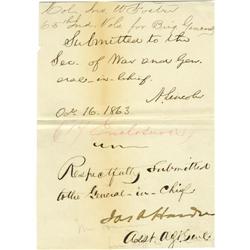 Col. Jno. W. Foster
65th Ind. Vols for Brig General
Submitted to the
Sec. of War and Gen-
eral-in-chief.
A. Lincoln
Oct. 16. 1863
Enclosures
Respectfully Submitted
to the General-in-Chief
Jas A Hardie
Asst. A. Genl